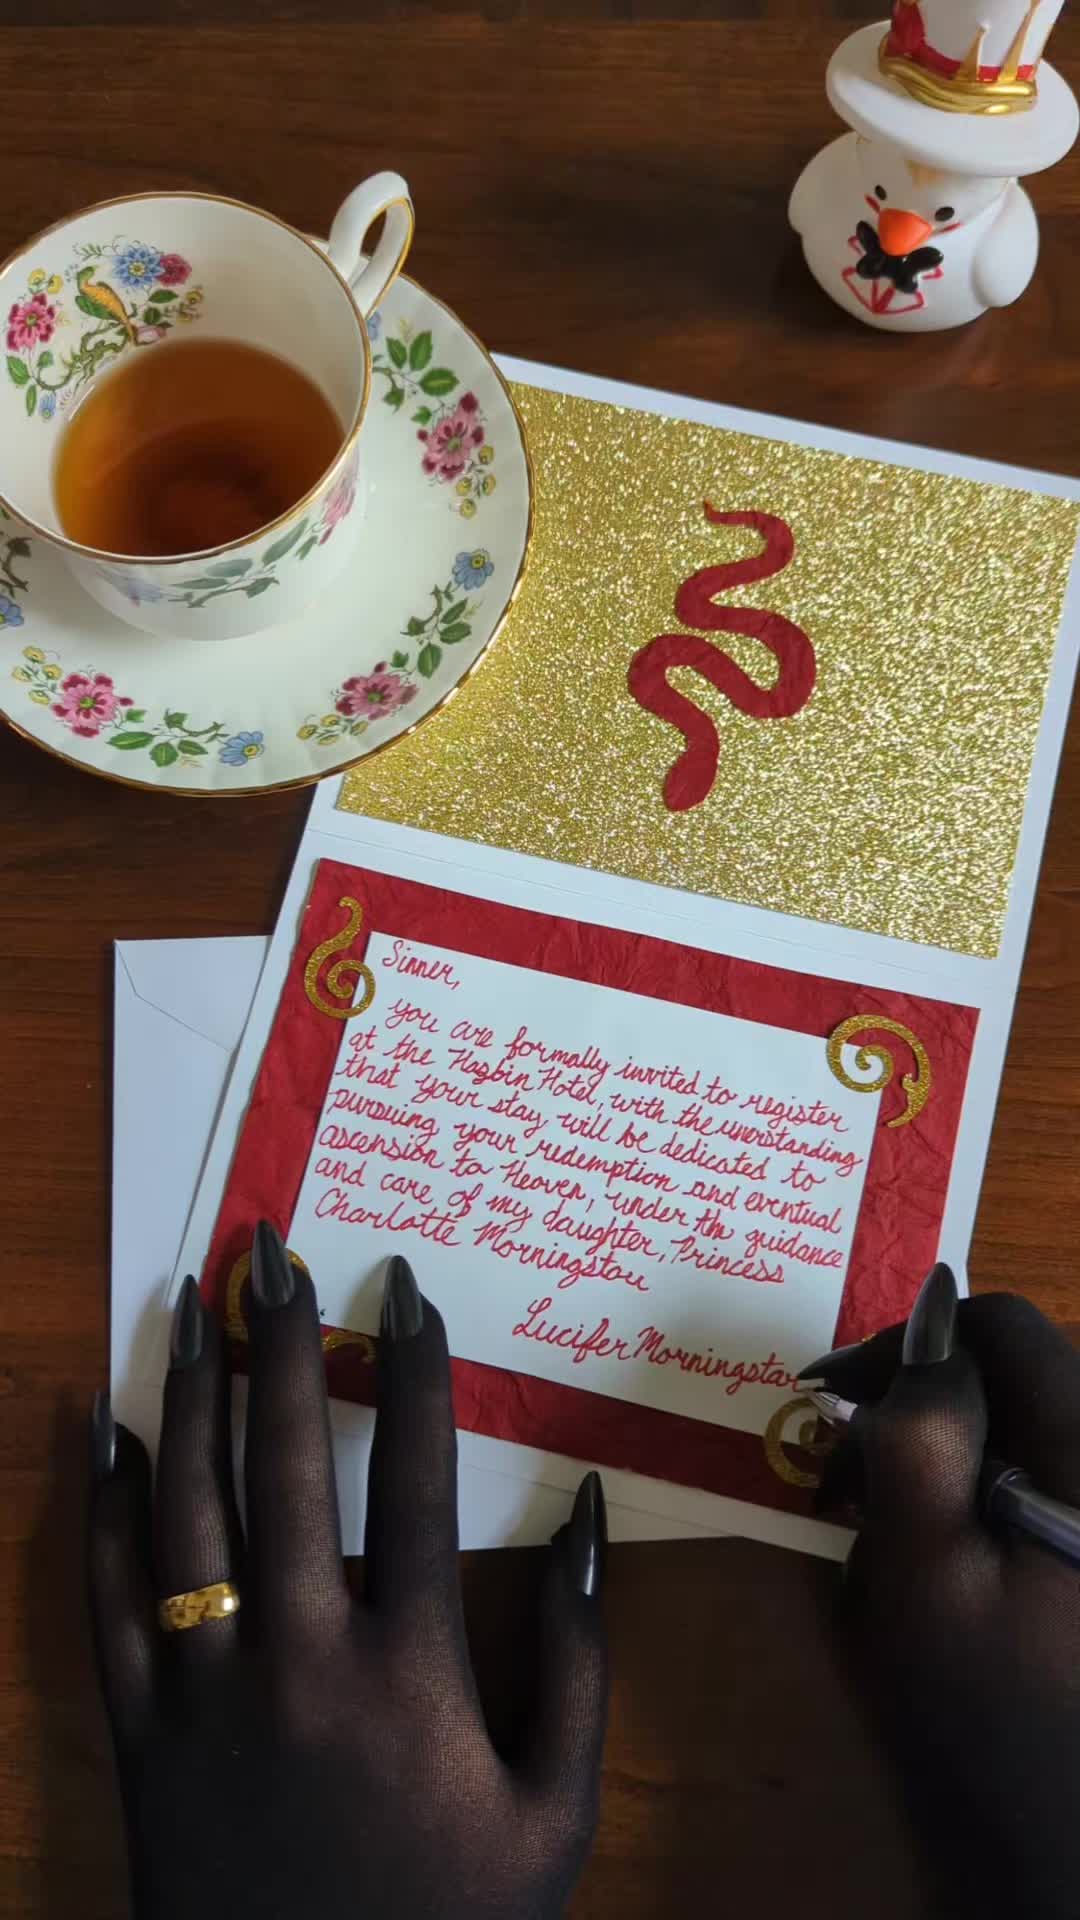 Sinner,
you are formally invited to register
at the Hazbin Hotel, with the unerstanding
that your stay will be dedicated to
pursuing your redemption and eventual
ascension to Heaven, under the guidance
and care of my daughter, Princess
Charlotte Morningstar
Lucifer Morningstar